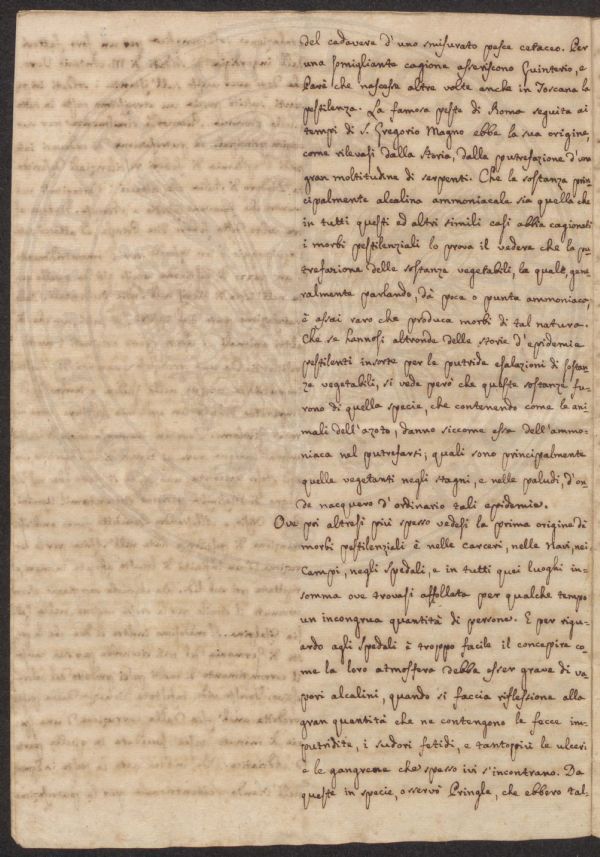 del cadavere d'uno smisurato pesce cetaceo. Per
una somigliante cagione asseriscono Guinterio, e
Parè che nascesse altre volte anche in Toscana la
pestilenza. La famosa peste di Roma seguita ai
tempi di S. Gregorio Magno ebbe la sua origine,
come rilevasi dalla storia, dalla putrefazione d'una
gran moltitudine di serpenti. Che la sostanza prin-
cipalmente alcalina ammoniacale sia quella che
in tutti questi ed altri simili casi abbia cagionati
i morbi pestilenziali lo prova il vedere che la pu-
trefazione delle sostanze vegetabili, la quale, gene-
ralmente parlando, dà poca o punta ammoniaca,
è assai raro che produca morbi di tal natura.
Che se hannosi altronde delle storie d'epidemie
pestilenti insorte per le putride esalazioni di sostan-
ze vegetabili, si vede però che queste sostanze fu-
rono di quella specie, che contenendo come le ani-
mali dell'azoto, danno siccome esse dell'ammo-
niaca nel putrefarsi; quali sono principalmente
quelle vegetanti negli stagni, e nelle paludi, d'on-
de nacquero d'ordinario tali epidemie.
Ove poi altresì più spesso vedesi la prima origine di
morbi pestilenziali è nelle carceri, nelle Navi, nei
Campi, negli spedali, e in tutti quei luoghi in-
somma ove trovasi affollata per qualche tempo
un incongrua quantità di persone. E per rigu-
ardo agli spedali è troppo facile il concepire co-
me la loro atmosfera debba esser grave di va-
pori alcalini, quando si faccia riflessione alla
gran quantità che ne contengono le fecce im-
putridite, i sudori fetidi, e tantopiù le ulceri
e le gangrene che spesso ivi s'incontrano. Da
queste in specie, osservò Pringle, che ebbero tal-